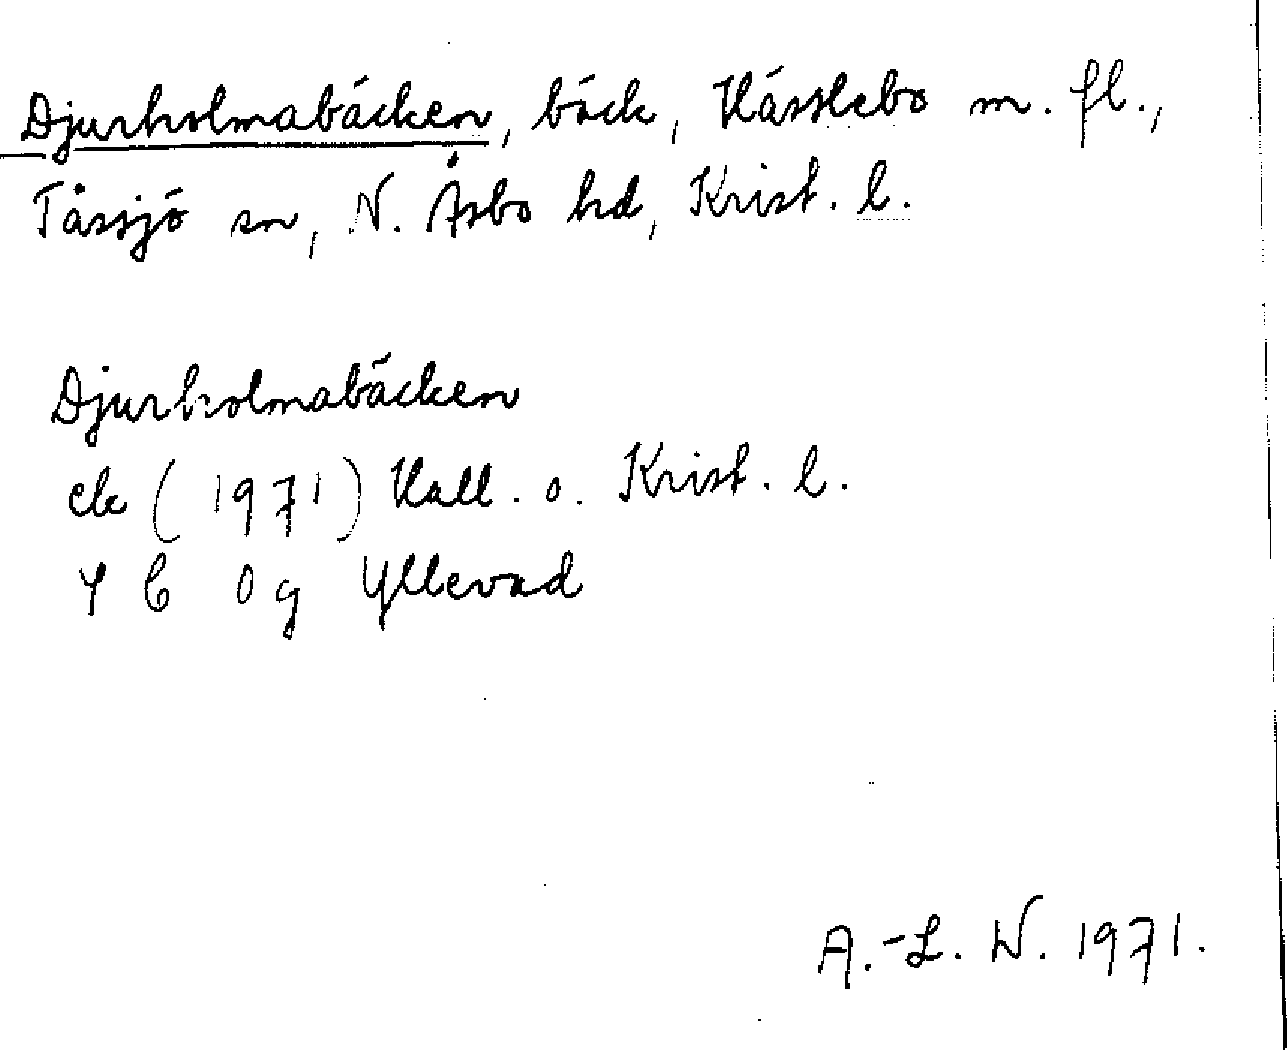 Djurholmabäcken, bäck, Hässlebo m. fl.,
Tåssjö sn, N. Åsbo hd, Krist. l.
Djurholmabäcken
ek (1971) Hall. o. Krist. l.
4 C 0 g Yllevad
A.-L. N. 1971.